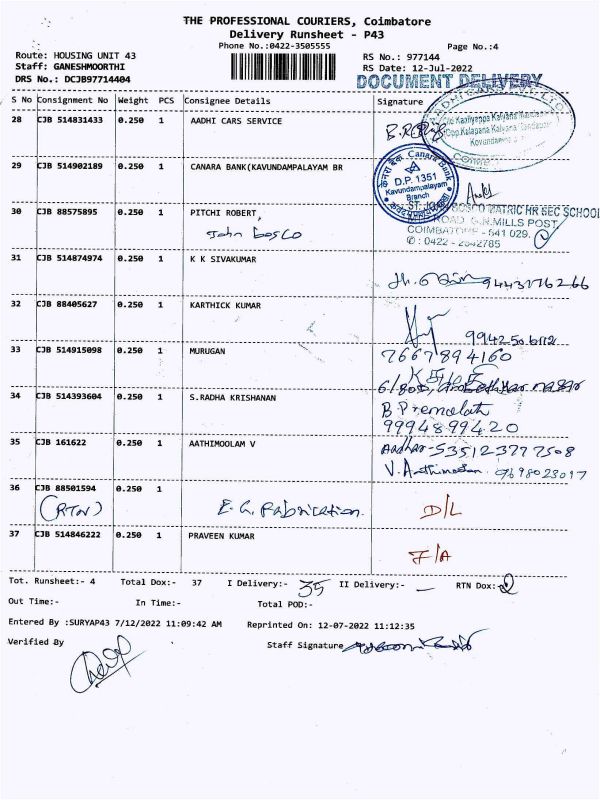 THE PROFESSIONAL COURIERS, Coimbatore
Delivery Runsheet - P43
Phone No.:0422-3505555
Page No.:4
Route: HOUSING UNIT 43
RS No.: 977144
Staff: GANESHMOORTHI
RS Date: 12-Jul-2022
DRS No.: DCJB97714404
DOCUMENT DELIVERY
S No Consignment No Weight PCS Consignee Details Signature
28 CJB 514831433 0.250 1 AADHI CARS SERVICE
Kovundam
COIMB
29 CJB 514902189 0.250 1 CANARA BANK(KAVUNDAMPALAYAM BR
Canara Bank
D.P. 1351
Kavundampalayam
Branch
30 CJB 88575895 0.250 1 PITCHI ROBERT,
John bosco
BOSCO MATRIC HR SEC SCHOOL
ROAD G.N.MILLS POST
COIMBATORE - 641 029.
: 0422 - 2642785
31 CJB 514874974 0.250 1 K K SIVAKUMAR
9443176266
32 CJB 88405627 0.250 1 KARTHICK KUMAR
33 CJB 514915098 0.250 1 MURUGAN
7667894160
34 CJB 514393604 0.250 1 S.RADHA KRISHANAN
B Premalath
9994899420
35 CJB 161622 0.250 1 AATHIMOOLAM V
Aadhar-535123777508
36 CJB 88501594 0.250 1
(RTN) E.G. Fabrication. D/L
37 CJB 514846222 0.250 1 PRAVEEN KUMAR
F/A
Tot. Runsheet:- 4 Total Dox:- 37 I Delivery:- 35 II Delivery:- — RTN Dox:-2
Out Time:- In Time:- Total POD:-
Entered By :SURYAP43 7/12/2022 11:09:42 AM Reprinted On: 12-07-2022 11:12:35
Verified By Staff Signature